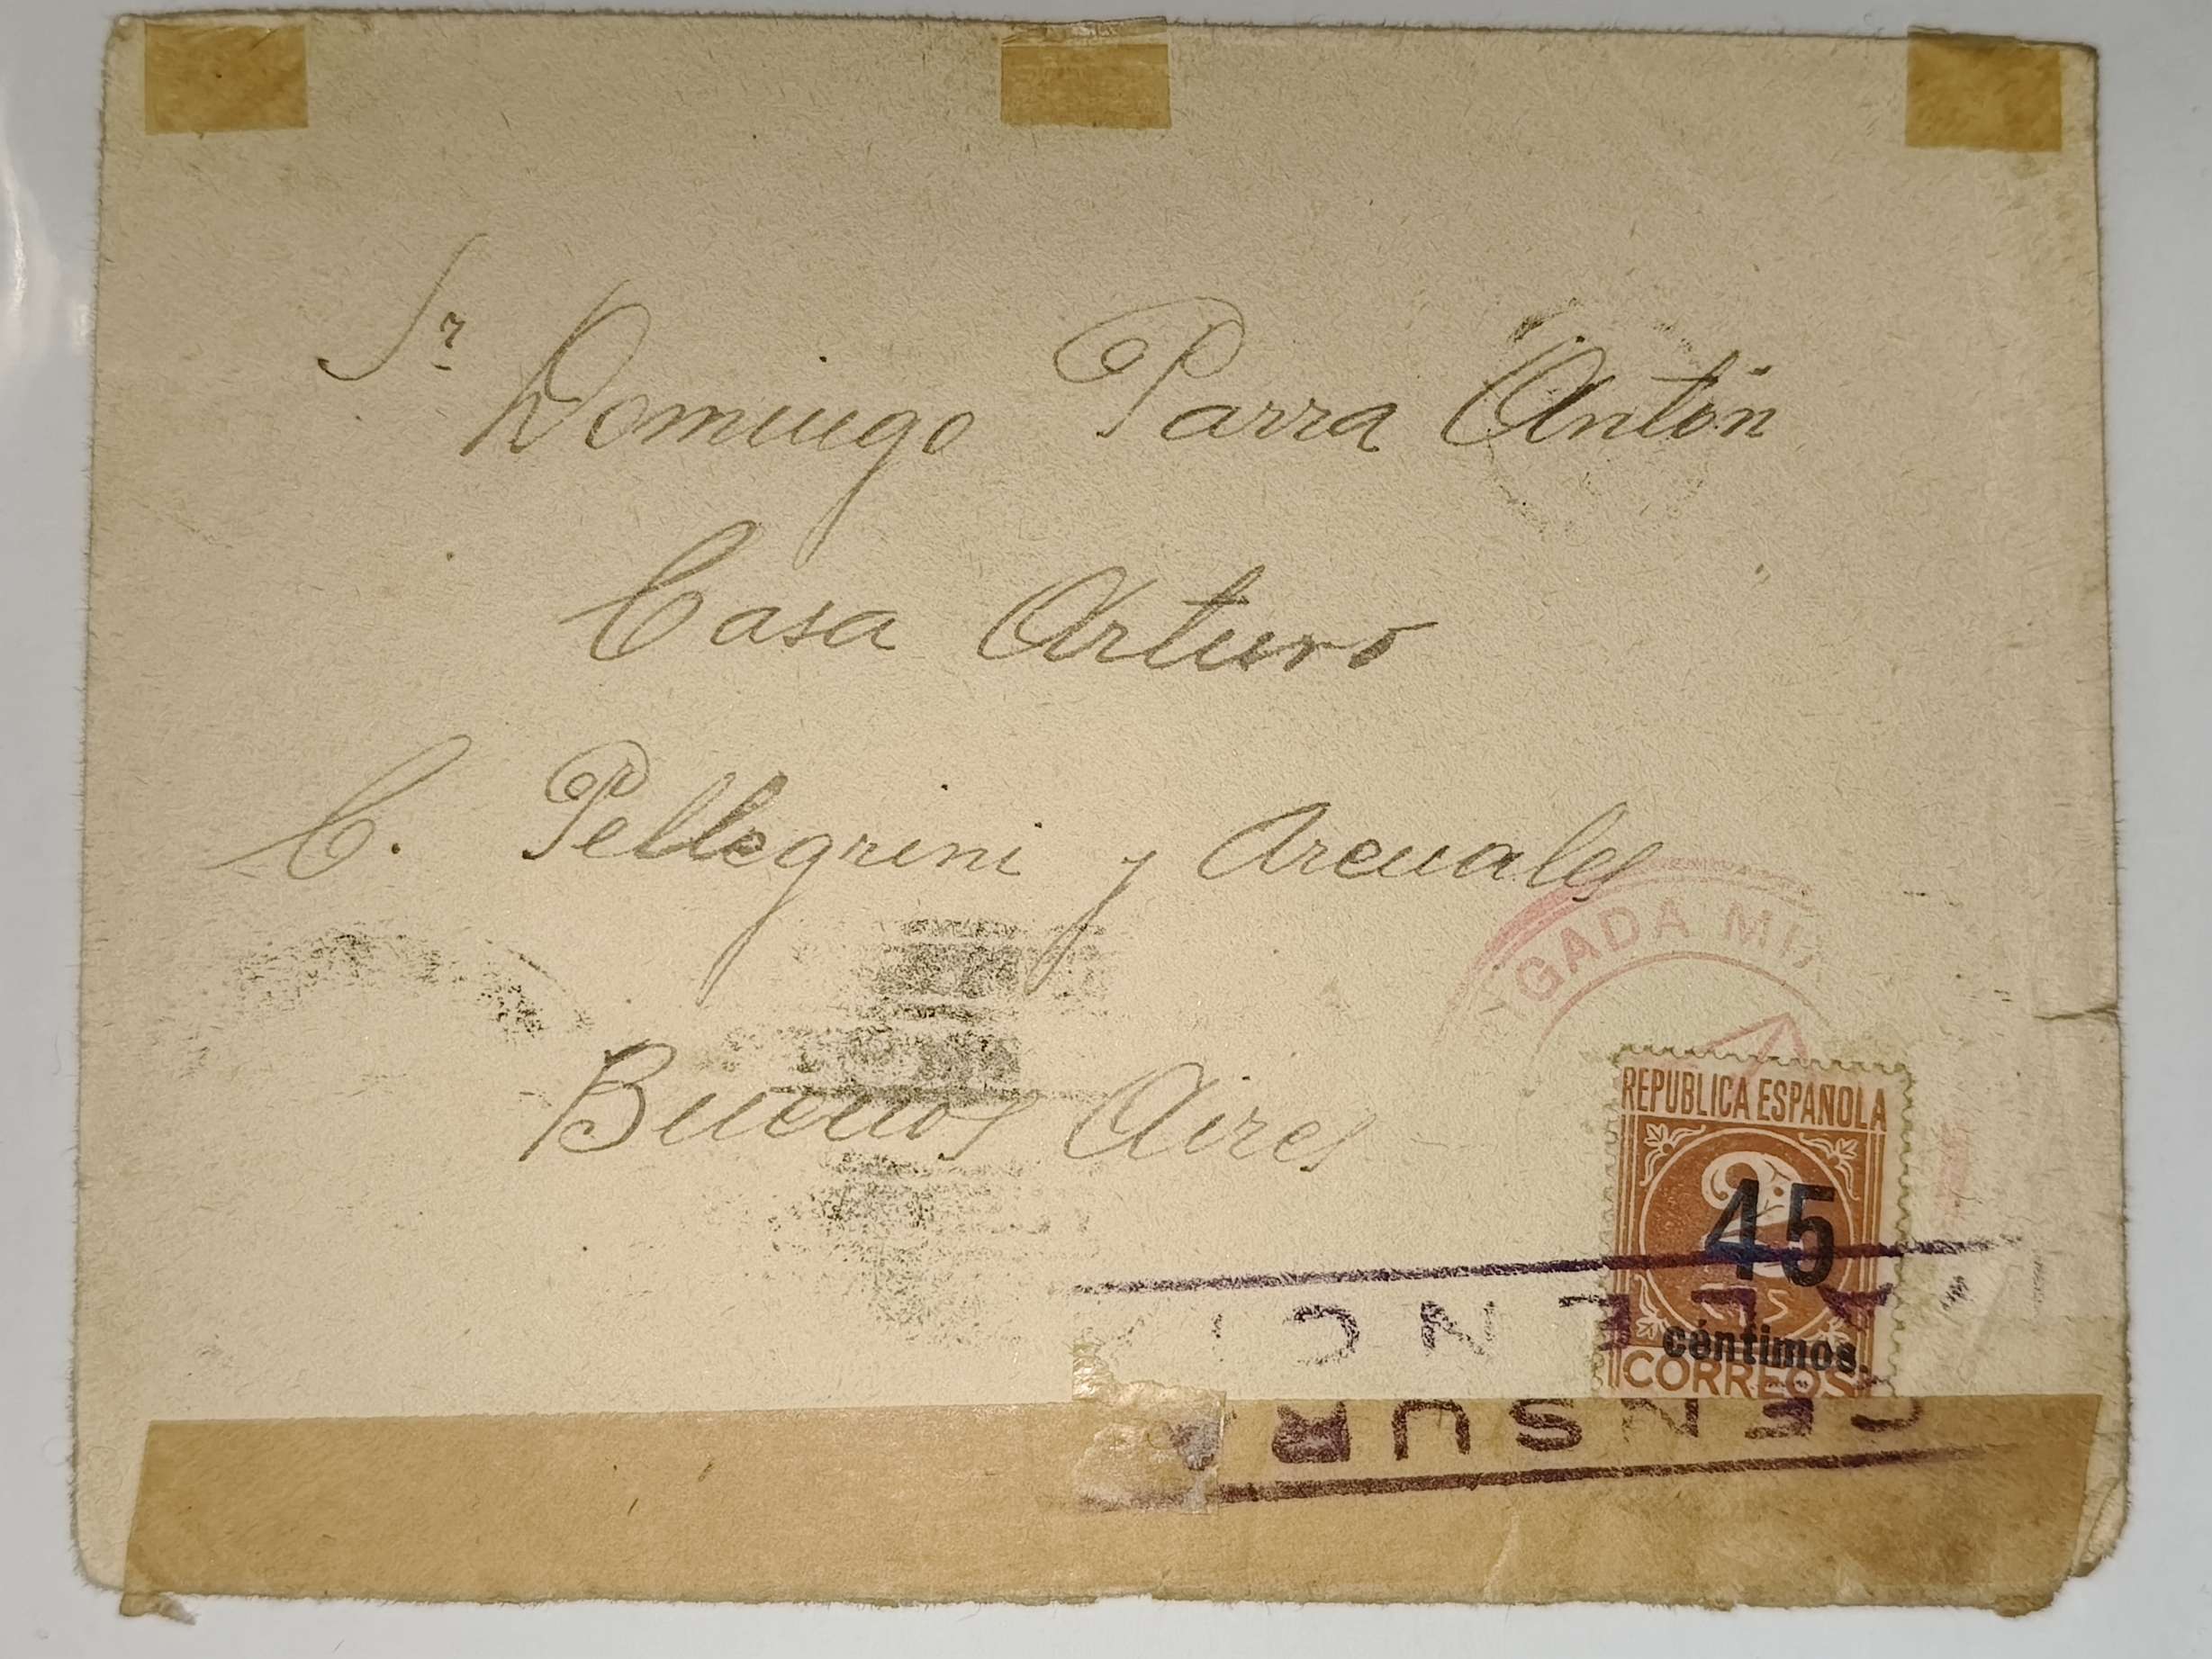 Sr Domingo Parra Antón
Casa Arturo
C. Pellegrini y Arenales
Buenos Aires
GADA MIX
REPUBLICA ESPAÑOLA
2
45
céntimos.
CORREOS
CENSUR